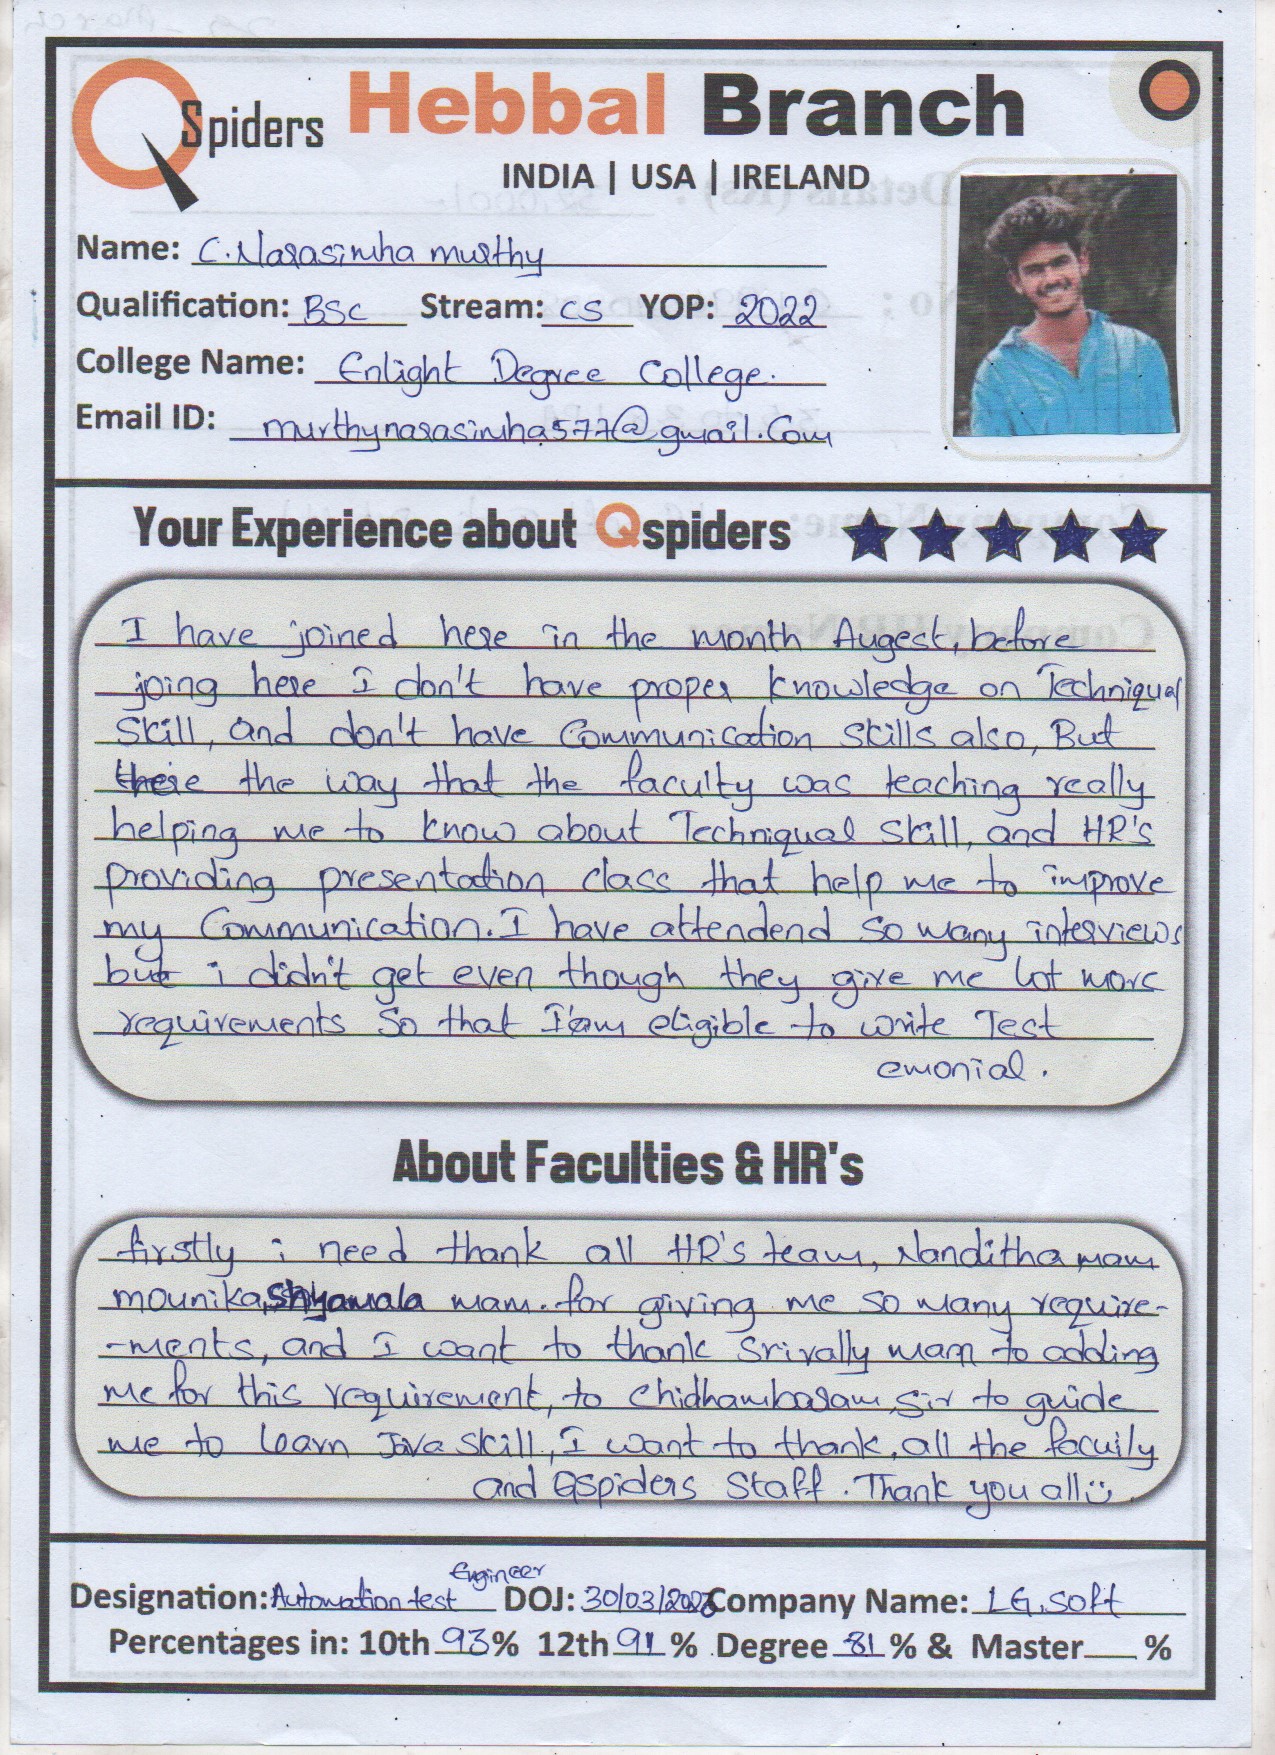 QSpiders Hebbal Branch
INDIA | USA | IRELAND
Name: C. Narasimha murthy
Qualification: BSC Stream: CS YOP: 2022
College Name: Enlight Degree College.
Email ID: murthynarasimha577@gmail.com
Your Experience about Qspiders
I have joined here in the month Augest, before
joing here I don't have proper knowledge on Techniqual
Skill, and don't have Communication Skills also, But
the way that the faculty was teaching really
helping me to know about Techniqual Skill, and HR's
providing presentation class that help me to improve
my Communication. I have attendend so many interviews
but i didn't get even though they give me lot more
requirements So that I'am eligible to write Test
emonial.
About Faculties & HR's
firstly i need thank all HR's team, Nanditha mam
mounika, Shyamala mam. for giving me so many require-
-ments, and I want to thank Srivally mam to adding
me for this requirement, to Chidhambaram Sir to guide
me to learn Java Skill, I want to thank, all the facuily
and QSpiders Staff. Thank you all
Designation: Automation test Engineer DOJ: 30/03/2023 Company Name: LG, Soft
Percentages in: 10th 93% 12th 91% Degree 81% & Master %